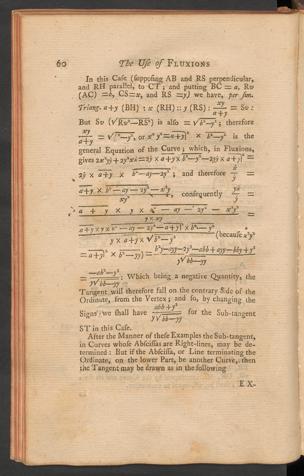 60 The Use of FLUXIONS
In this Case (supposing AB and RS perpendicular,
and RH parallel, to CT; and putting BC = a, Rv
(AC) = b, CS = x, and RS = y) we have, per sim.
Triang. a+y (BH) : x (RH) :: y (RS) : xy/a+y = Sv:
But Sv (√Rv²−RS²) is also = √b²−y²; therefore
xy/a+y = √b²−y², or x²y² = a+y|² × b²−y² is the
general Equation of the Curve; which, in Fluxions,
gives 2x²yẏ + 2y²xẋ = 2ẏ × a+y × b²−y² − 2yẏ × a+y|² =
2ẏ × a+y × b²−ay−2y²; and therefore ẋ/ẏ =
a+y × b²−ay−2y²−x²y/xy², consequently yẋ/ẏ =
a+y × y × b²−ay−2y²−x²y²/y×xy =
a+y × y × b²−ay−2y²−a+y|² × b²−y²/y × a+y × √b²−y² (because x²y²
= a+y|² × b²−yy) = b²y−ayy−2y³−abb+ayy−bby+y³/y√bb−yy =
−ab²−y³/y√bb−yy: Which being a negative Quantity, the
Tangent will therefore fall on the contrary Side of the
Ordinate, from the Vertex; and so, by changing the
Signs, we shall have abb+y³/y√bb−yy for the Sub-tangent
ST in this Case.
After the Manner of these Examples the Sub-tangent,
in Curves whose Abscissas are Right-lines, may be de-
termined: But if the Abscissa, or Line terminating the
Ordinate, on the lower Part, be another Curve, then
the Tangent may be drawn as in the following
EX-